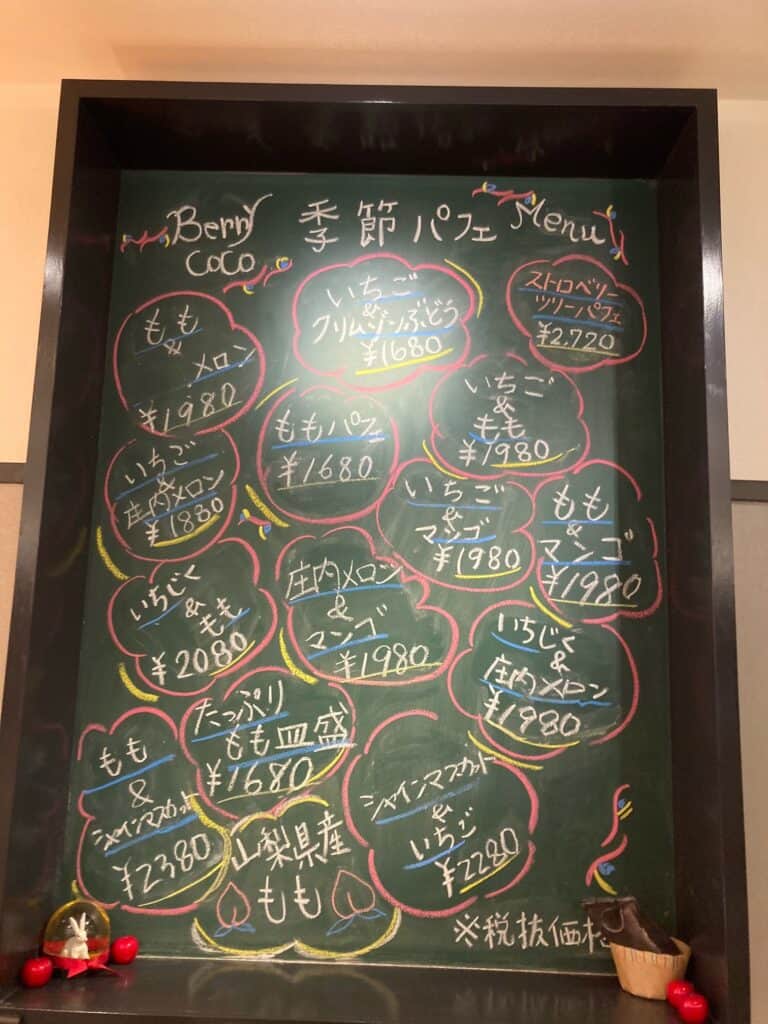 Berry
CoCo
季節パフェ
Menu
いちご
&
クリムゾンぶどう
¥1680
ストロベリー
ツリーパフェ
¥2,720
もも
&
メロン
¥1980
ももパフェ
¥1680
いちご
&
もも
¥1980
いちご
&
庄内メロン
¥1880
いちご
&
マンゴ
¥1980
もも
&
マンゴ
¥1980
いちじく
&
もも
¥2080
庄内メロン
&
マンゴ
¥1980
いちじく
&
庄内メロン
¥1980
たっぷり
もも皿盛
¥1680
もも
&
シャインマスカット
¥2380
シャインマスカット
&
いちご
¥2280
山梨県産
もも
※税抜価格